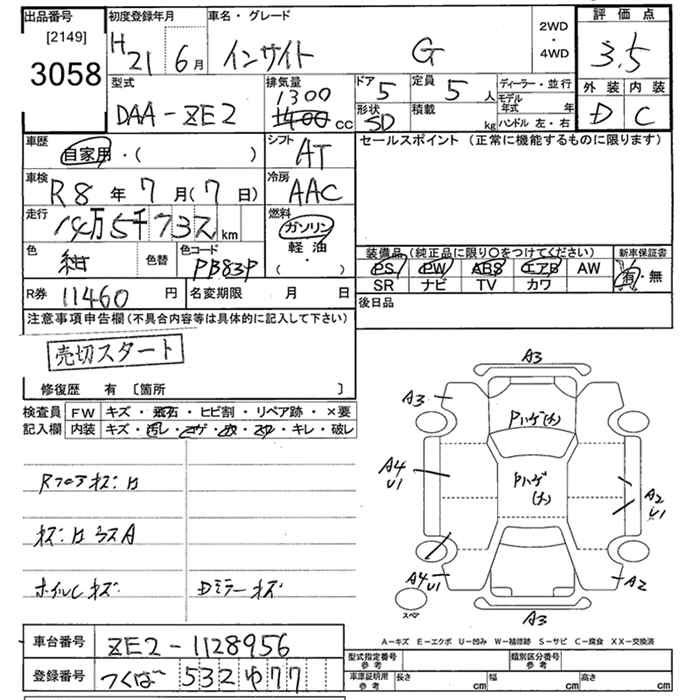 出品番号 [2149] 3058
初度登録年月 H21 6月
車名・グレード インサイト G
2WD ・ 4WD
評価点 3.5
外装 D 内装 C
型式 DAA-ZE2
排気量 1300 1400 cc
ドア 5 定員 5 人
ディーラー・並行
モデル年式 年
形状 SD 積載 kg
ハンドル 左・右
車歴 自家用・( )
シフト AT
セールスポイント (正常に機能するものに限ります)
車検 R8年 7月(7日)
冷房 AAC
走行 14万5千732km
燃料 ガソリン 軽油 ( )
色 紺 色替 色コード PB83P
装備品 (純正品に限り○をつけてください) 新車保証書
PS PW ABS エアB AW 有・無
SR ナビ TV カワ
R券 11460 円 名変期限 月 日
後日品
注意事項申告欄(不具合内容等は具体的に記入して下さい)
売切スタート
修復歴 有 〔箇所 〕
検査員記入欄
FW キズ・飛石・ヒビ割・リペア跡・×要
内装 キズ・汚レ・コゲ・穴・スレ・キレ・破レ
Rフロアキズ
キズ
A
ホイルCキズ Dミラーキズ
A3
A3 Pハゲ(大)
A4 U1
Pハゲ(大)
A2 U1
A4 U1
A2
スペア
A3
A-キズ E-エクボ U-凹み W-補修跡 S-サビ C-腐食 XX-交換済
車台番号 ZE2-1128956
型式指定番号 参考 類別区分番号 参考
登録番号 つくば 532 ゆ 77
車庫証明用 参考 長さ cm 幅 cm 高さ cm